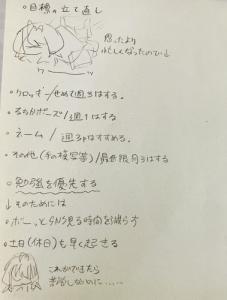 。目標の立て直し
思ったより
忙しくなったので↓
・クロッキー/せめて週5はする。
るちかポーズ/週1はする
・ネーム/週3pはすすめる。
・その他(手の模写等)/最低限月3はする
。勉強を優先する
↓そのためには
。ボーッとSNS見る時間を減らす
。土日(休日)も早く起きる
これができたら
苦労しないのに……